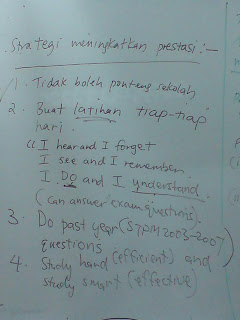 Strategi meningkatkan prestasi :-
1. Tidak boleh ponteng sekolah
2. Buat latihan tiap-tiap
hari.
"I hear and I forget
I see and I remember.
I DO and I understand.
(can answer exam questions).
3. Do past year (STPM 2003-2007)
questions
4. Study hard (efficient) and
study smart (effective)